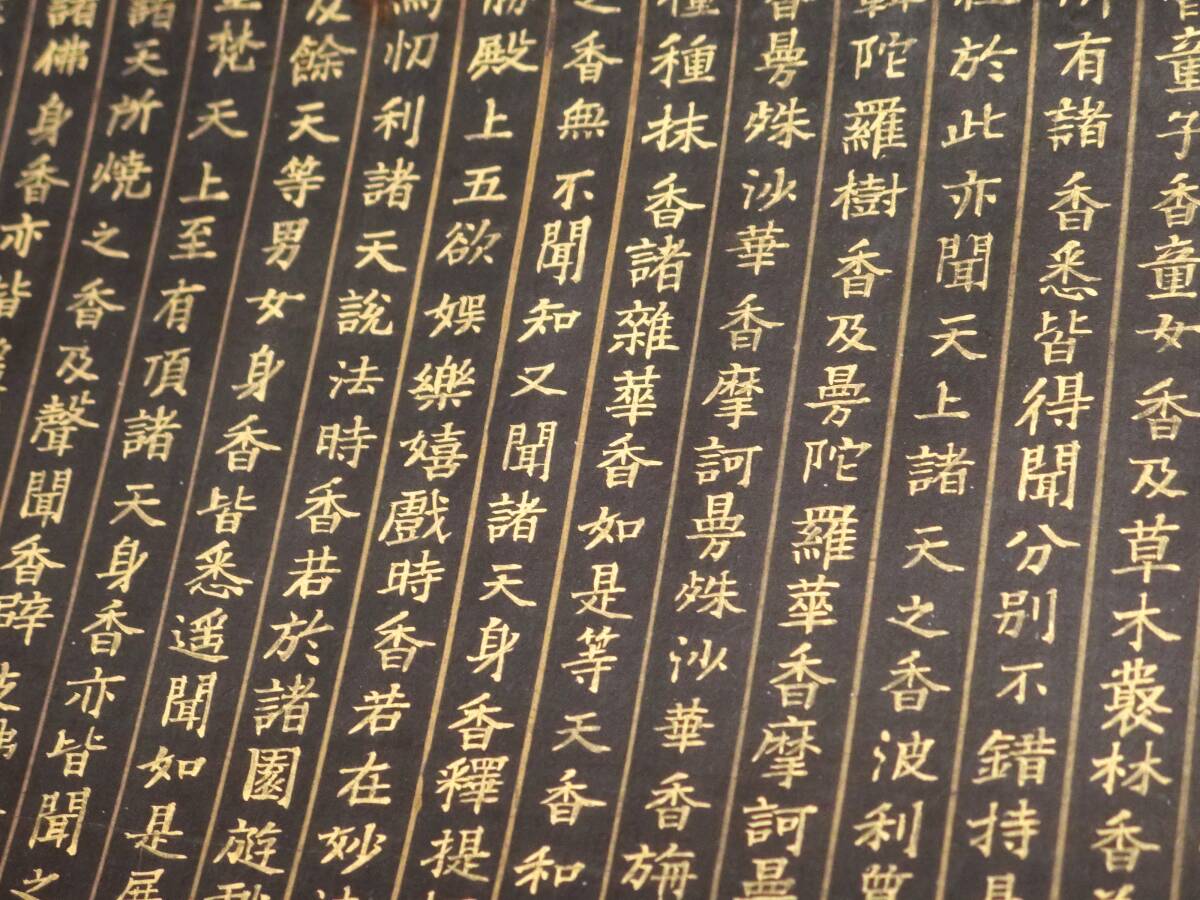 童子香童女香及草木叢林香
所有諸香悉皆得聞分別不錯持是
於此亦聞天上諸天之香波利質
陀羅樹香及曼陀羅華香摩訶曼
香曼殊沙華香摩訶曼殊沙華香栴
種種抹香諸雜華香如是等天香和
之香無不聞知又聞諸天身香釋提
勝殿上五欲娛樂嬉戲時香若在妙法
為忉利諸天說法時香若於諸園遊戲
及餘天等男女身香皆悉遙聞如是展
至梵天上至有頂諸天身香亦皆聞之
諸天所燒之香及聲聞香辟支佛
諸佛身香亦皆